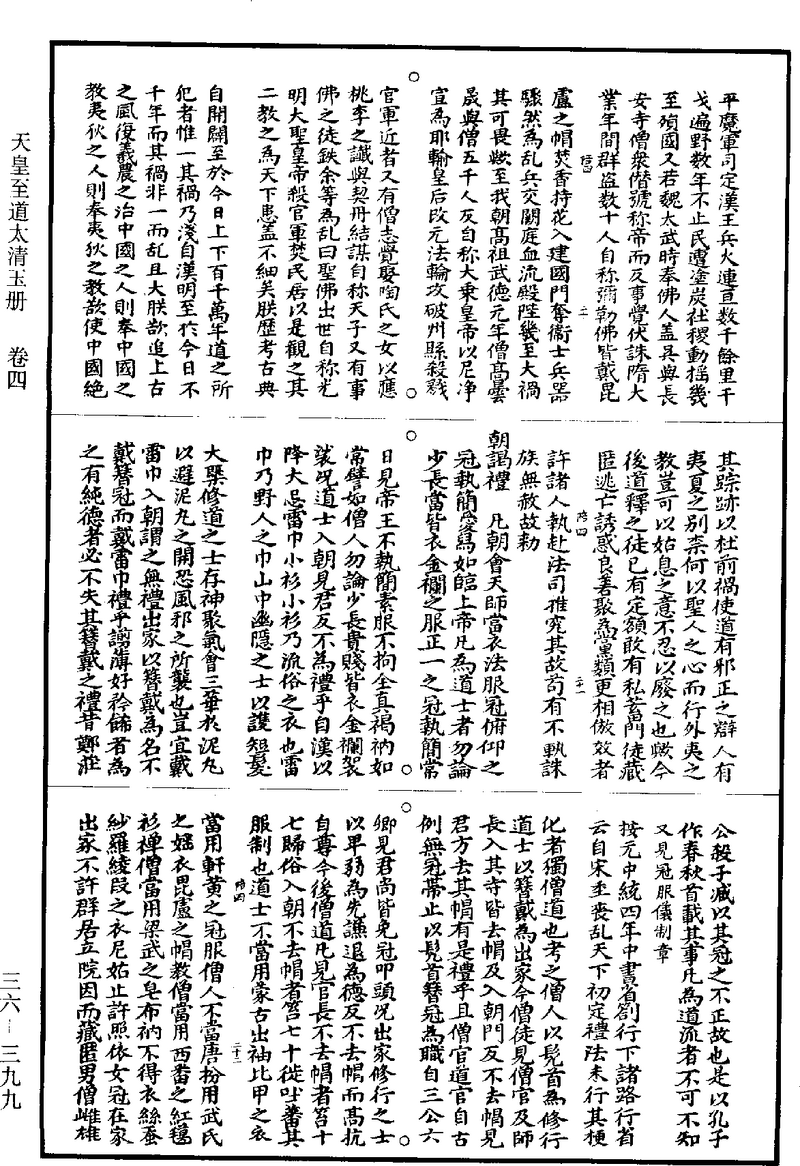 天皇至道太清玉册　卷四
三六—三九九
平魔軍司定漢王兵火連亘数千餘里干
戈遍野数年不止民遭塗炭社稷動摇幾
至殞國又若魏太武時奉佛人盖具與長
安寺僧衆僭號称帝而反事覺伏誅隋大
業年間群盗数十人自称彌勒佛皆戴毘
盧之帽焚香持花入建國門奪衞士兵器
驟然為乱兵交闕庭血流殿陛幾至大禍
其可畏歟至我朝髙祖武德元年僧髙曇
晟與僧五千人反自称大乗皇帝以尼净
宣為耶輸皇后改元法輪攻破州縣殺戮
官軍近者又有僧志覺娶陶氏之女以應
桃李之讖與契丹結謀自称天子又有事
佛之徒鉄余等為乱曰聖佛出世自称光
明大聖皇帝殺官軍焚民居以是觀之其
二教之為天下患盖不細矣朕歷考古典
自開闢至於今日上下百千萬年道之所
犯者惟一其禍乃淺自漢明至於今日不
千年而其禍非一而乱且大朕欲追上古
之風復羲農之治中國之人則奉中國之
教夷狄之人則奉夷狄之教欲使中國絶
其踪跡以杜前禍使道有邪正之辯人有
夷夏之别柰何以聖人之心而行外夷之
教豈可以姑息之意不忍以廢之也歟今
後道釋之徒已有定額敢有私蓄門徒藏
匿逃亡誘惑良善聚為黨類更相倣效者
許諸人執赴法司推究其故苟有不執誅
族無赦故勅
朝謁禮　凡朝會天師當衣法服冠俯仰之
冠執簡舄如臨上帝凡為道士者勿論
少長當皆衣金襴之服正一之冠執簡常
日見帝王不執簡素服不拘全真褐衲如
常譬如僧人勿論少長貴賤皆衣金襴袈
裟况道士入朝見君反不為禮乎自漢以
降大忌雷巾小衫小衫乃流俗之衣也雷
巾乃野人之巾山中幽隠之士以護短髪
大槩修道之士存神聚氣會三華於泥丸
以避泥丸之開恐風邪之所襲也豈宜戴
雷巾入朝謂之無禮出家以簪戴為名不
戴簪冠而戴雷巾禮乎澆漓好矜餙者為
之有純德者必不失其簪戴之禮昔鄭莊
公殺子臧以其冠之不正故也是以孔子
作春秋首載其事凡為道流者不可不知
又見冠服儀制章
按元中統四年中書省劄行下諸路行省
云自宋季喪乱天下初定禮法未行其梗
化者獨僧道也考之僧人以髠首為修行
道士以簪戴為出家今僧徒見僧官及師
長入其寺皆去帽及入朝門反不去帽見
君方去其帽有是禮乎且僧官道官自古
例無冠帶止以髠首簪冠為職自三公六
卿見君尚皆免冠叩頭况出家修行之士
以卑弱為先謙退為德反不去帽而髙抗
自尊今後僧道凡見官長不去帽者笞十
七歸俗入朝不去帽者笞七十徙吐蕃其
服制也道士不當用蒙古出袖比甲之衣
當用軒黄之冠服僧人不當唐扮用武氏
之媱衣毘盧之帽教僧當用西畨之紅氆
衫禅僧當用梁武之皂布衲不得衣絲蚕
紗羅綾段之衣尼姑止許照依女冠在家
出家不許群居立院因而藏匿男僧雌雄